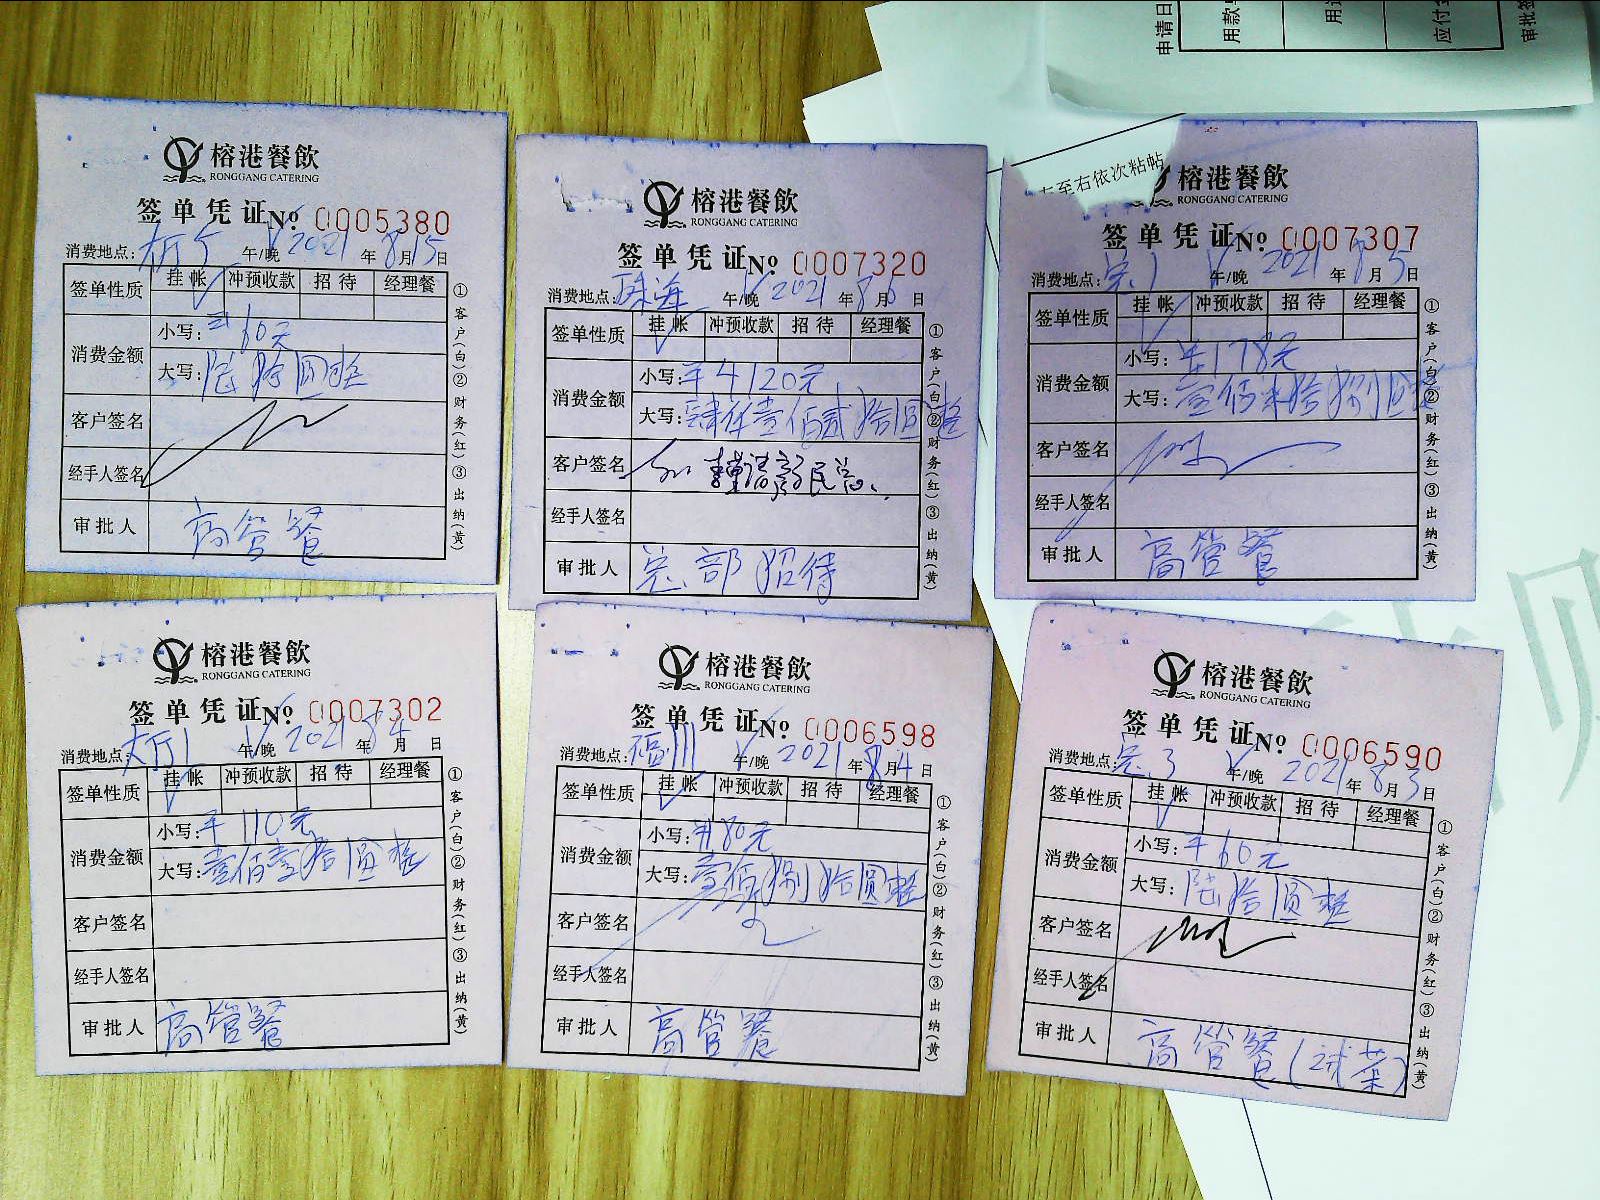 申请日
用款
用
应付
审批签
左至右依次粘帖
榕港餐飲
RONGGANG CATERING
签单凭证 No 0005380
消费地点: 大厅5 午/晚 2021年8月15日
签单性质 挂帐 冲预收款 招待 经理餐
消费金额 小写: ¥60元
大写: 陆拾圆整
客户签名
经手人签名
审批人 高管餐
①客户(白)②财务(红)③出纳(黄)
榕港餐飲
RONGGANG CATERING
签单凭证 No 0007320
消费地点: 珠海 午/晚 2021年8月6日
签单性质 挂帐 冲预收款 招待 经理餐
消费金额 小写: ¥4120元
大写: 肆仟壹佰贰拾圆整
客户签名
经手人签名
审批人 总部招待
①客户(白)②财务(红)③出纳(黄)
榕港餐飲
RONGGANG CATERING
签单凭证 No 0007307
消费地点: 总1 午/晚 2021年8月5日
签单性质 挂帐 冲预收款 招待 经理餐
消费金额 小写: ¥178元
大写: 壹佰柒拾捌圆整
客户签名
经手人签名
审批人 高管餐
①客户(白)②财务(红)③出纳(黄)
榕港餐飲
RONGGANG CATERING
签单凭证 No 0007302
消费地点: 大厅1 午/晚 2021年8月4日
签单性质 挂帐 冲预收款 招待 经理餐
消费金额 小写: ¥110元
大写: 壹佰壹拾圆整
客户签名
经手人签名
审批人 高管餐
①客户(白)②财务(红)③出纳(黄)
榕港餐飲
RONGGANG CATERING
签单凭证 No 0006598
消费地点: 福州 午/晚 2021年8月4日
签单性质 挂帐 冲预收款 招待 经理餐
消费金额 小写: ¥180元
大写: 壹佰捌拾圆整
客户签名
经手人签名
审批人 高管餐
①客户(白)②财务(红)③出纳(黄)
榕港餐飲
RONGGANG CATERING
签单凭证 No 0006590
消费地点: 总3 午/晚 2021年8月3日
签单性质 挂帐 冲预收款 招待 经理餐
消费金额 小写: ¥60元
大写: 陆拾圆整
客户签名
经手人签名
审批人 高管餐(试菜)
①客户(白)②财务(红)③出纳(黄)